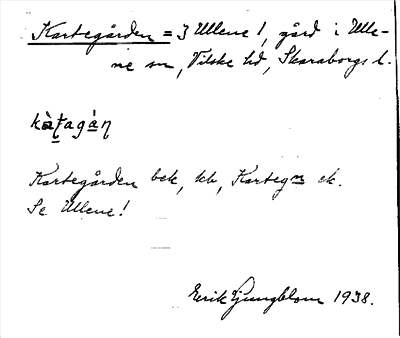 Kartegården = 3 Ullene 1, gård i Ulle-
ne sn, Vilske hd, Skaraborgs l.
kàtagán
Kartegården bek, kb, Karteg:n ek.
Se Ullene!
Erik Ljungblom 1938.